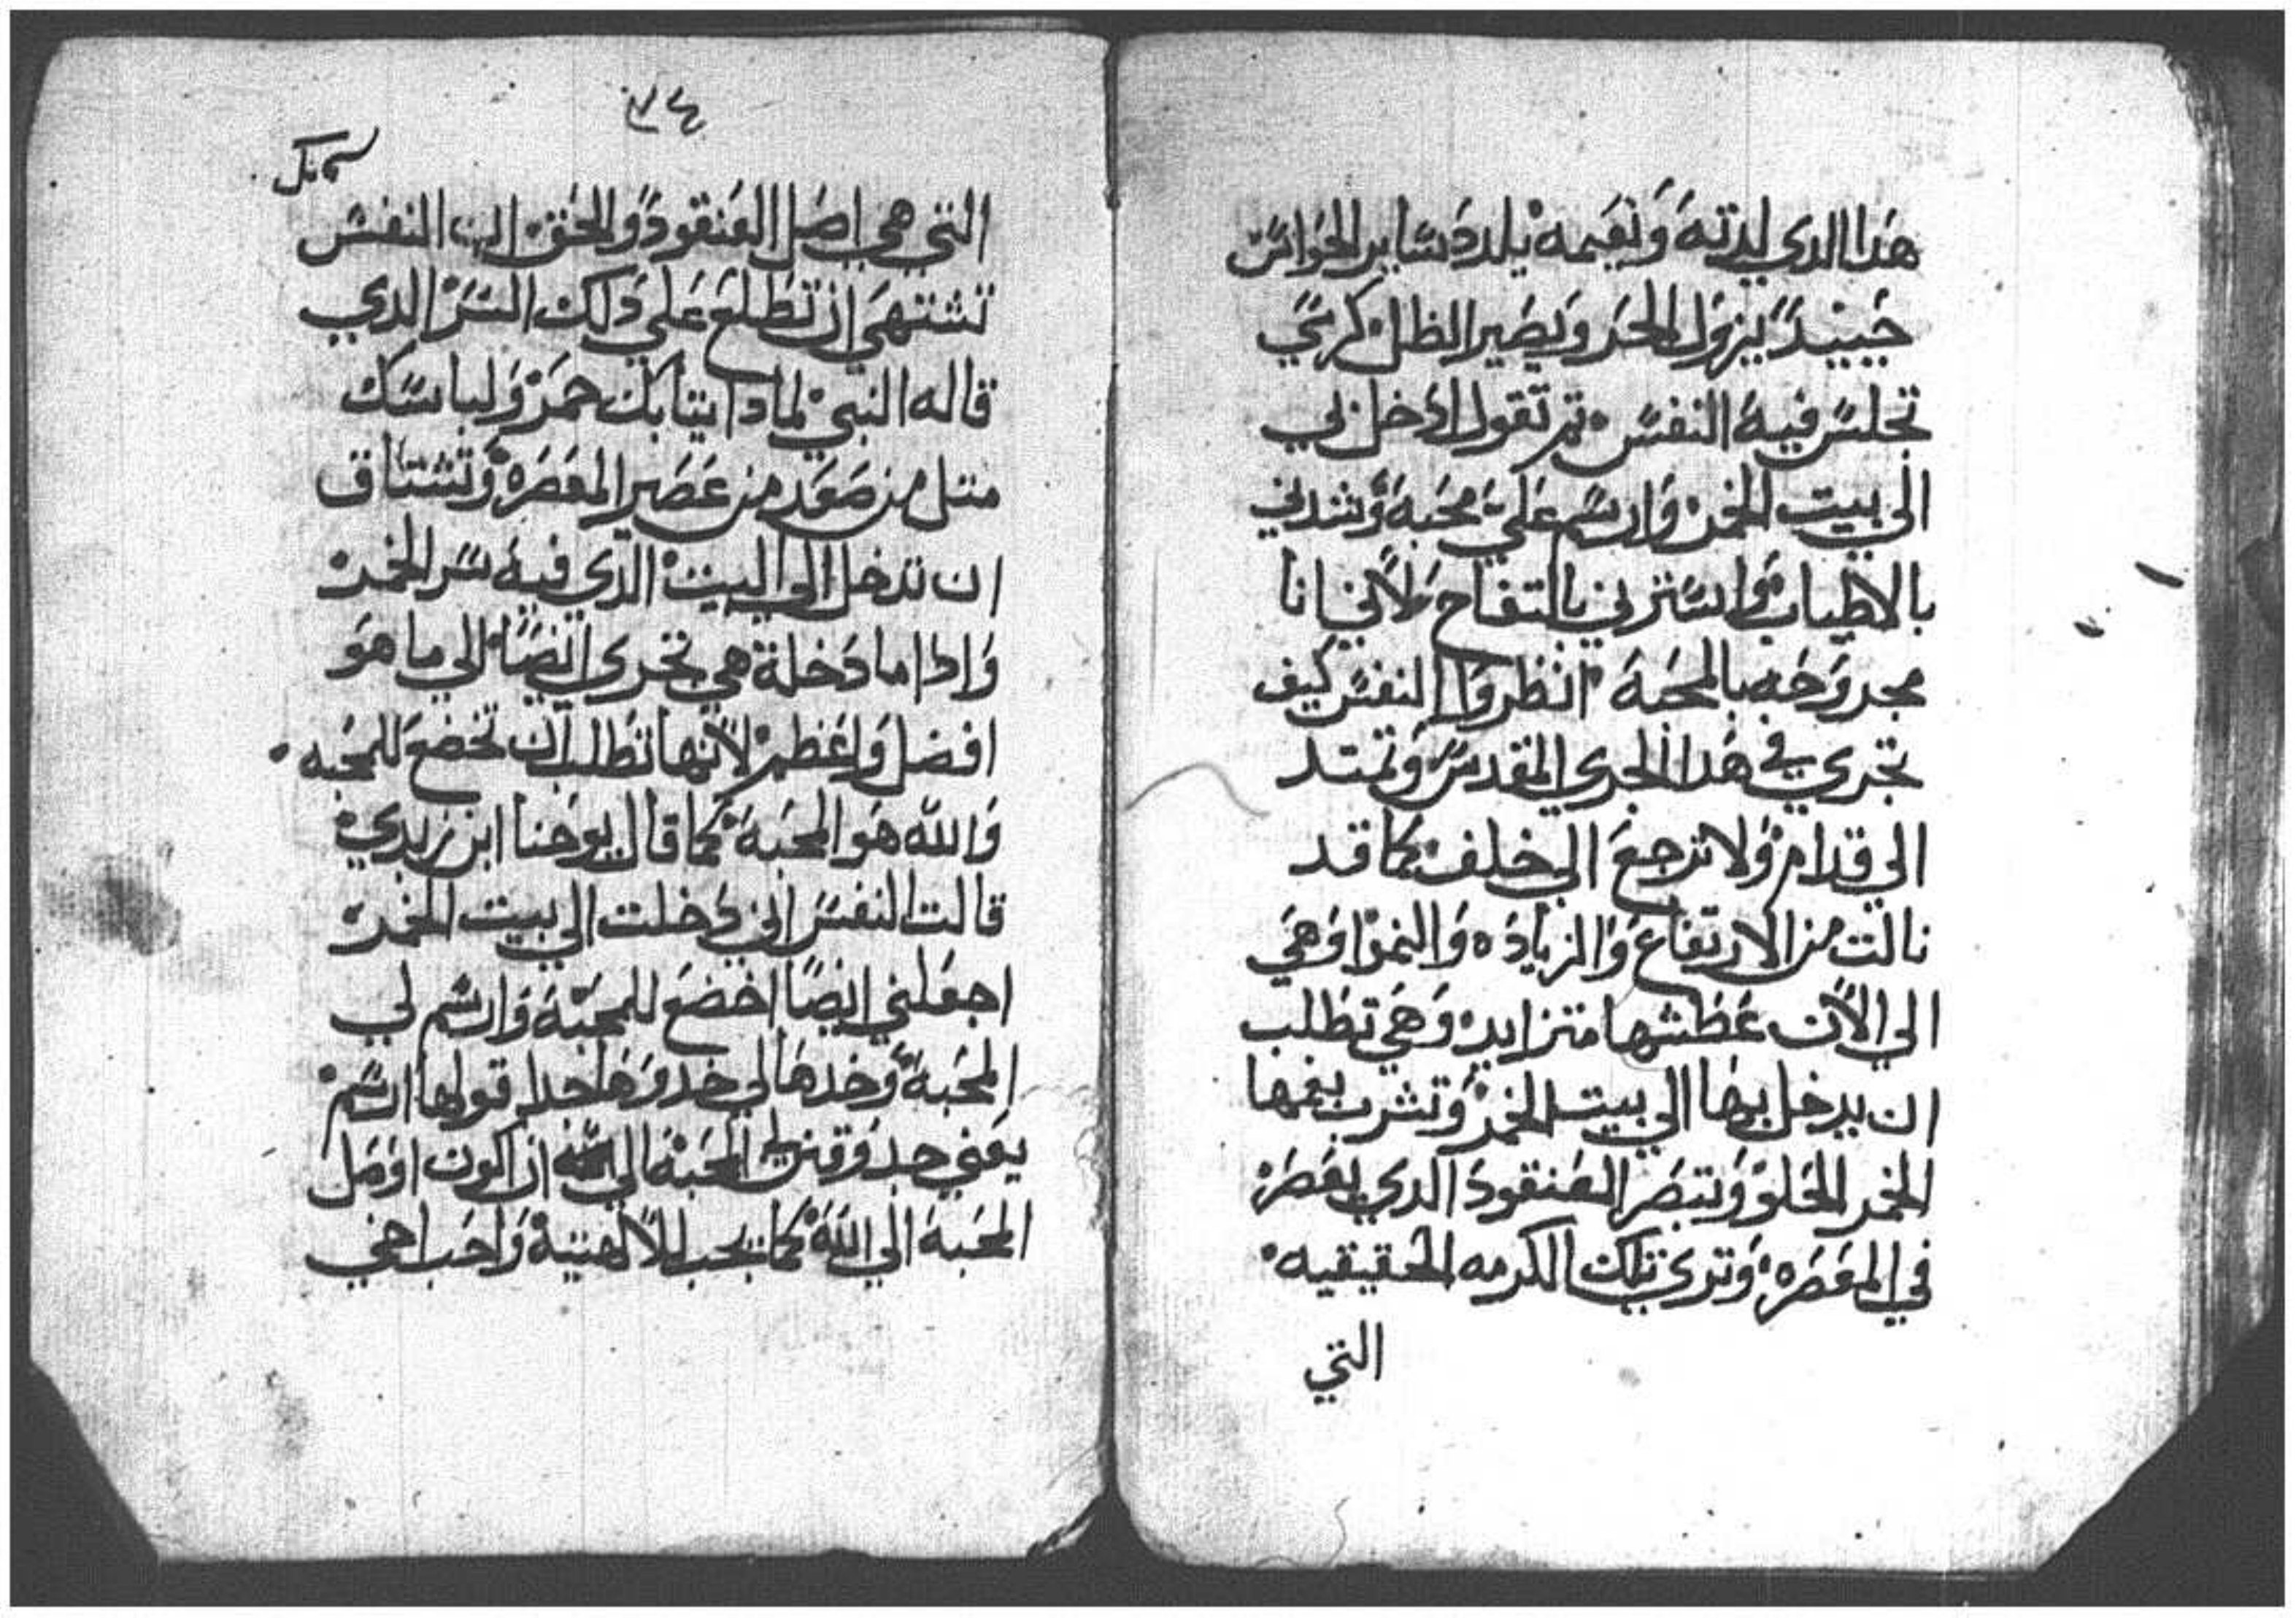 هذا الدي لدته ونعيمه يلدد ساير الحواس
حينيد يزول الحر ويصير الظل كرسي
تجلس فيه النفس تم تقول ادخل بي
الى بيت الخمر وارسم علي محبه وشدني
بالاطياب واسترني بالتفاح لاني انا
مجروحه بالمحبة انظروا النفس كيف
تجري في هدا الجري المقدس وتمتد
الي قدام ولا ترجع الي خلف كما قد
نالت من الارتفاع والزياده والنموا وهي
الي الان عطشها متزايد وهي تطلب
ان يدخل بها الي بيت الخمر وتشرب بفمها
الخمر الحلو وتبصر العنقود الدي يعصر
في المعصره وتري تلك الكرمه الحقيقيه
التي
٣٤
التي هي اصل العنقود والحق ان النفس
تشتهي ان تطلع علي دلك السر الدي
قاله النبي لمادا يتابك حمر ولباسك
متل من صعد من عصير المعصره وتشتاق
ان تدخل الي البيت الدي فيه سر الخمر
وادا ما دخلة هي تجري ايضا الي ما هو
افضل واعظم لانها تطلب ان تخضع للمحبه
والله هو المحبة كما قال يوحنا ابن زبدي
قالت النفس اني دخلت الي بيت الخمر
اجعلني ايضا اخضع للمحبة وارسم لي
المحبة وحدها لي قولها ارسم
يعني المحبة الي ان اكون اوصل
المحبة الي الله كما يجب للالهيتة واحب اخي